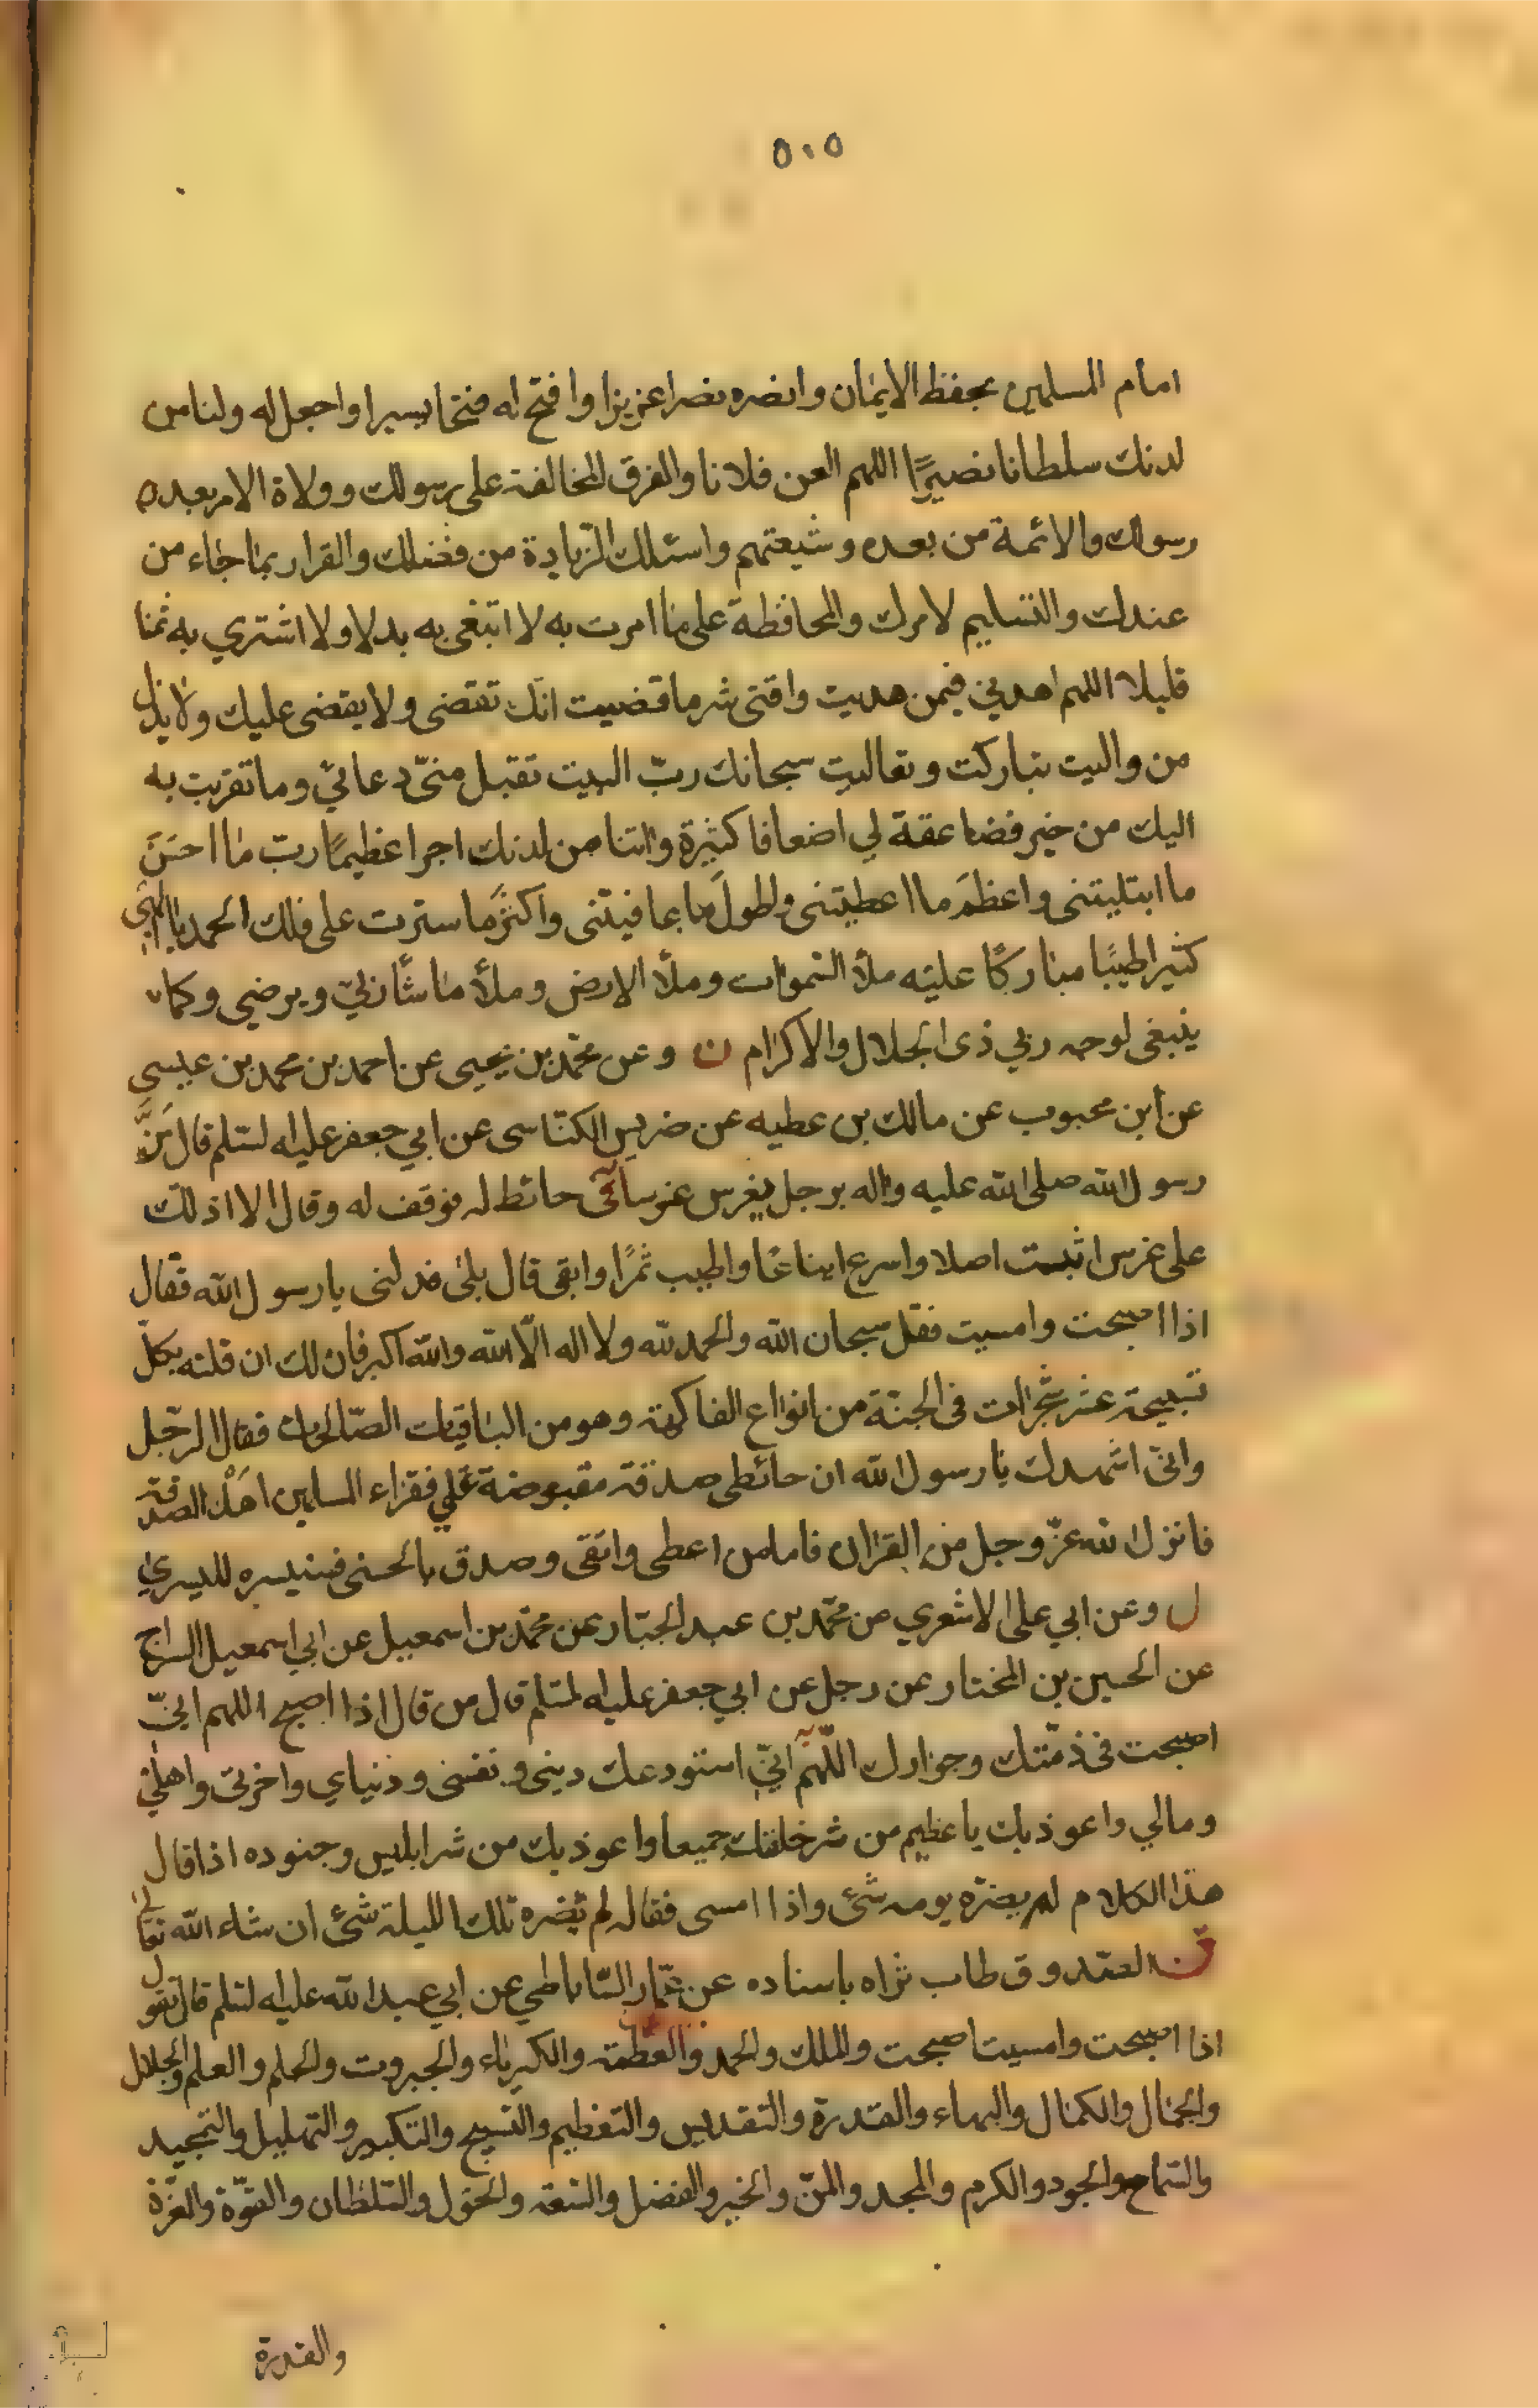 ٥٠٥
امام المسلمين بحفظ الايمان وانصره نصرا عزيزا وافتح له فتحا يسيرا واجعل له ولنا من
لدنك سلطانا نصيرًا اللهم العن فلانا والفرق المخالفة على رسولك وولاة الامر بعد
رسولك والائمة من بعده وشيعتهم واسئلك الزيادة من فضلك والقرار بما جاء من
عندك والتسليم لامرك والمحافظة على ما امرت به لا ابتغى به بدلا ولا اشتري به ثمنا
قليلا اللهم اهدني فيمن هديت وقنى شر ما قضيت انّك تقضى ولا يقضى عليك ولا يذل
من واليت تباركت وتعاليت سبحانك ربّ البيت تقبل منىّ دعائي وما تقربت به
اليك من خير فضاعفه لي اضعافا كثيرة واتنا من لدنك اجرا عظيمًا ربّ ما احسَنَ
ما ابتليتنى واعظمَ ما اعطيتنى واطولَ ما عافيتنى واكثرَ ما سترت على فلك الحمد يا الهي
كثيرا طيبًا مباركًا عليه ملأ السموات وملأ الارض وملأ ما شأ ربّي ويرضى وكما
ينبغى لوجه ربي ذى الجلال والاكرام ن وعن محمّد بن يحيى عن احمد بن محمد بن عيسى
عن ابن محبوب عن مالك بن عطيه عن ضريس الكنّاسى عن ابي جعفر عليه السلم قال مَرَّ
رسول الله صلى الله عليه واله برجل يغرس غرسا فى حائط له فوقف له وقال الا ادلك
على غرس اثبت اصلا واسرع ايناعًا واطيب ثمرًا وابقى قال بلى فدلنى يا رسول الله فقال
اذا اصبحت وامسيت فقل سبحان الله والحمد لله ولا اله الّا الله والله اكبر فان لك ان قلته بكلّ
تسبيحة عشر شجرات فى الجنّة من انواع الفاكهة وهو من الباقيات الصّالحات فقال الرّجل
وانىّ اشهدك يا رسول الله ان حائطى صدقة مقبوضة على فقراء المسلمين اهْل الصدقة
فانزل الله عزّ وجل من القران فاما من اعطى واتقى وصدق بالحسنى فسنيسره لليسرى
ل وعن ابي على الاشعري عن محمّد بن عبد الجبّار عن محمّد بن اسمعيل عن ابي اسمعيل السراج
عن الحسين بن المختار عن رجل عن ابي جعفر عليه السلم قال من قال اذا اصبح اللهم انيّ
اصبحت فى ذمّتك وجوارك اللّهمّ انيّ استودعك دينى ونفسى ودنياي واخرتى واهلي
ومالي واعوذ بك يا عظيم من شر خلقك جميعا واعوذ بك من شر ابليس وجنوده اذا قال
هذا الكلام لم يضرّه يومه شئ واذا امسى فقاله لم يضره تلك الليلة شئ ان شاء الله تعالى
الصدوق طاب ثراه باسناده عن عمّار السّاباطي عن ابي عبد الله عليه السلم قال تقول
اذا اصبحت وامسيت اصبحت والملك والحمد والعظمة والكبرياء والجبروت والحلم والعلم والجلال
والجمال والكمال والبهاء والقدرة والتقديس والتعظيم والتسبيح والتكبير والتهليل والتمجيد
والسّماح والجود والكرم والمجد والمنّ والخير والفضل والسّعة والحول والسّلطان والقوّة والعزّة
والقدرة